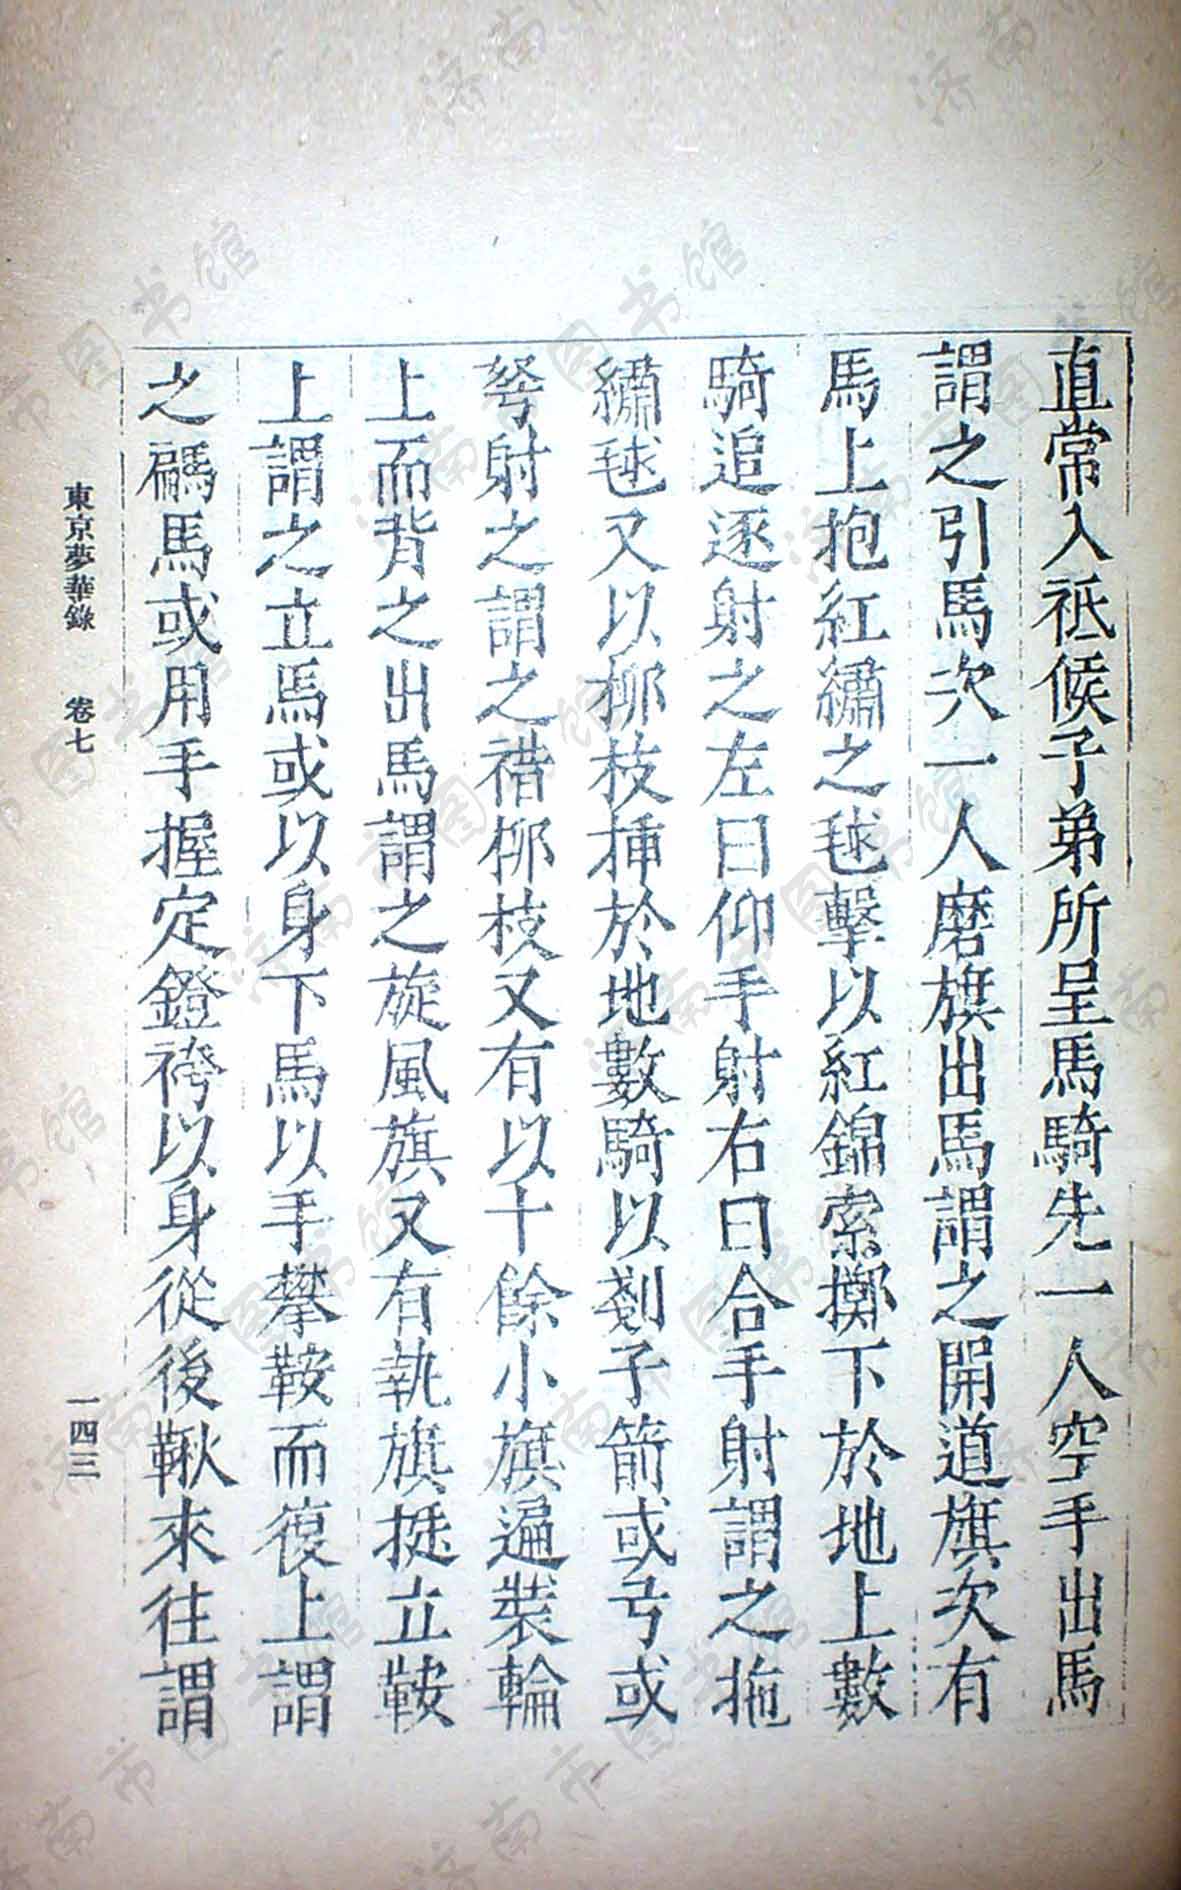 直常入祗候子弟所呈馬騎先一人空手出馬
謂之引馬次一人磨旗出馬謂之開道旗次有
馬上抱紅繡之毬擊以紅錦索擲下於地上數
騎追逐射之左曰仰手射右曰合手射謂之拖
繡毬又以柳枝挿於地數騎以剗子箭或弓或
弩射之謂之䄍柳枝又有以十餘小旗遍裝輪
上而背之出馬謂之旋風旗又有執旗挺立鞍
上謂之立馬或以身下馬以手攀鞍而復上謂
之騗馬或用手握定鐙袴以身從後鞦來往謂
東京夢華錄 卷七 一四三
济南市图书馆